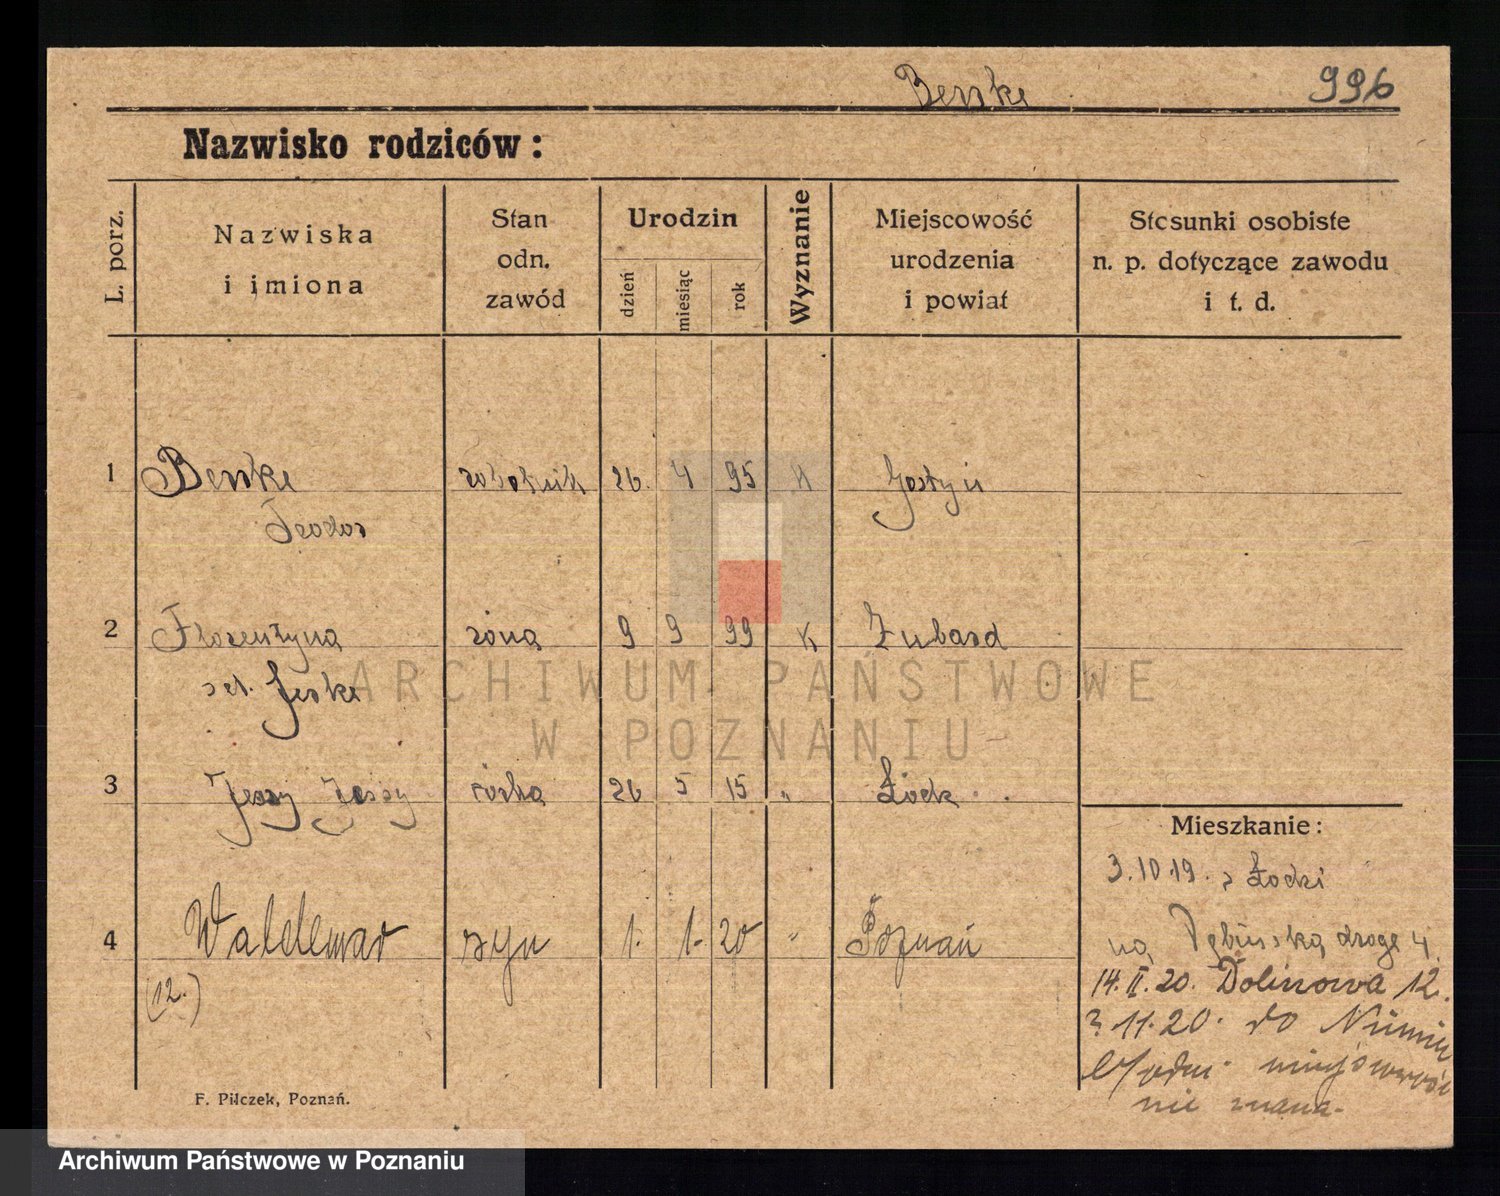 Benke 996
Nazwisko rodziców:
L. porz.
Nazwiska
i imiona
Stan
odn.
zawód
Urodzin
dzień
miesiąc
rok
Wyznanie
Miejscowość
urodzenia
i powiat
Stosunki osobiste
n. p. dotyczące zawodu
i t. d.
1 robotnik 26. 4 95 K Gostyń
Teodor
2 Florentyna żona 9 9 99 K
Jeske
3 córka 26 5 15 "
Mieszkanie:
3.10.19. z
4 Waldemar syn 1. 1. 20 " Poznań
na drogę 4.
(12.)
14.II.20. Dolinowa 12.
3.11.20. do
nie znana.
F. Pilczek, Poznań.
ARCHIWUM PAŃSTWOWE
W POZNANIU
Archiwum Państwowe w Poznaniu